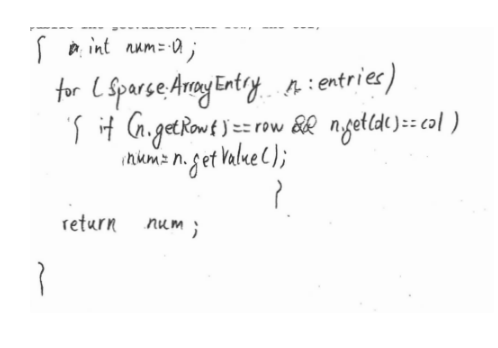 { int num=0;
for (SparseArrayEntry n : entries)
{ if (n.getRow()==row && n.getCol()==col )
num=n.getValue();
}
return num ;
}